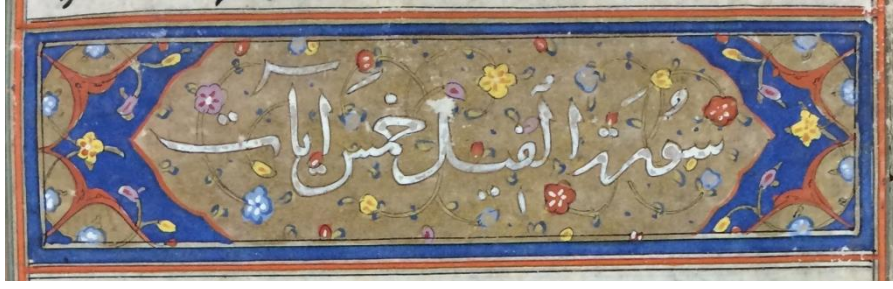 سورة الفيل خمس ايات